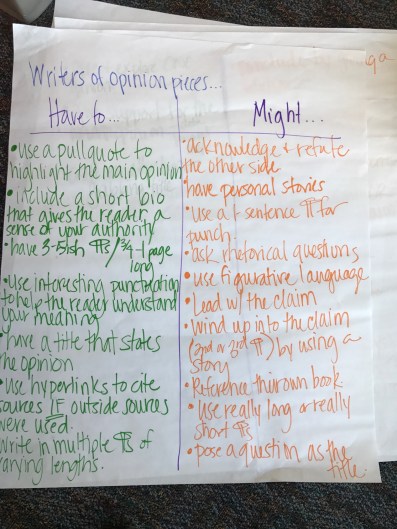 Writers of opinion pieces...
Have to...
• use a pullquote to
highlight the main opinion
• include a short bio
that gives the reader a
sense of your authority
• have 3-5ish ¶s/ 3/4-1 page
long
• Use interesting punctuation
to help the reader understand
your meaning
• have a title that states
the opinion
• Use hyperlinks to cite
sources IF outside sources
were used.
Write in multiple ¶s of
varying lengths.
Might...
• acknowledge + refute
the other side
• have personal stories
• use a 1 sentence ¶ for
punch
• ask rhetorical questions
• use figurative language
• Lead w/ the claim
• Wind up into the claim
(2nd or 3rd ¶) by using a
story
• Reference their own book
• Use really long or really
short ¶s
• pose a question as the
title.